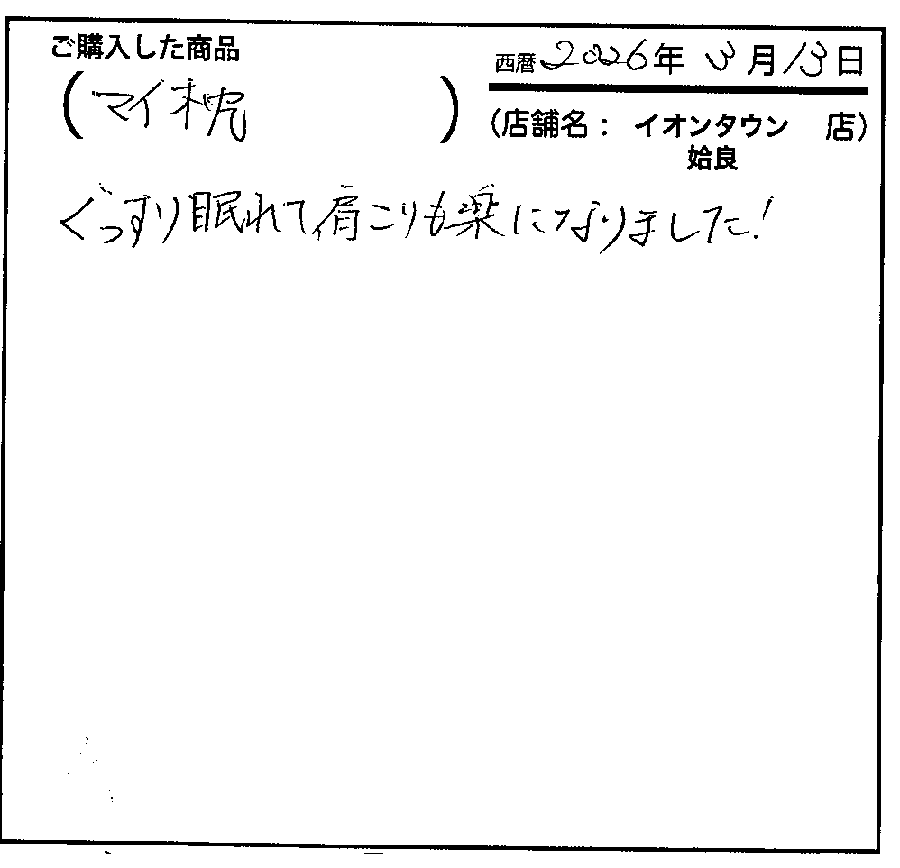 ご購入した商品
西暦 2026年 3月 13日
(マイ枕)
(店舗名: イオンタウン 店)
姶良
ぐっすり眠れて肩こりも楽になりました!